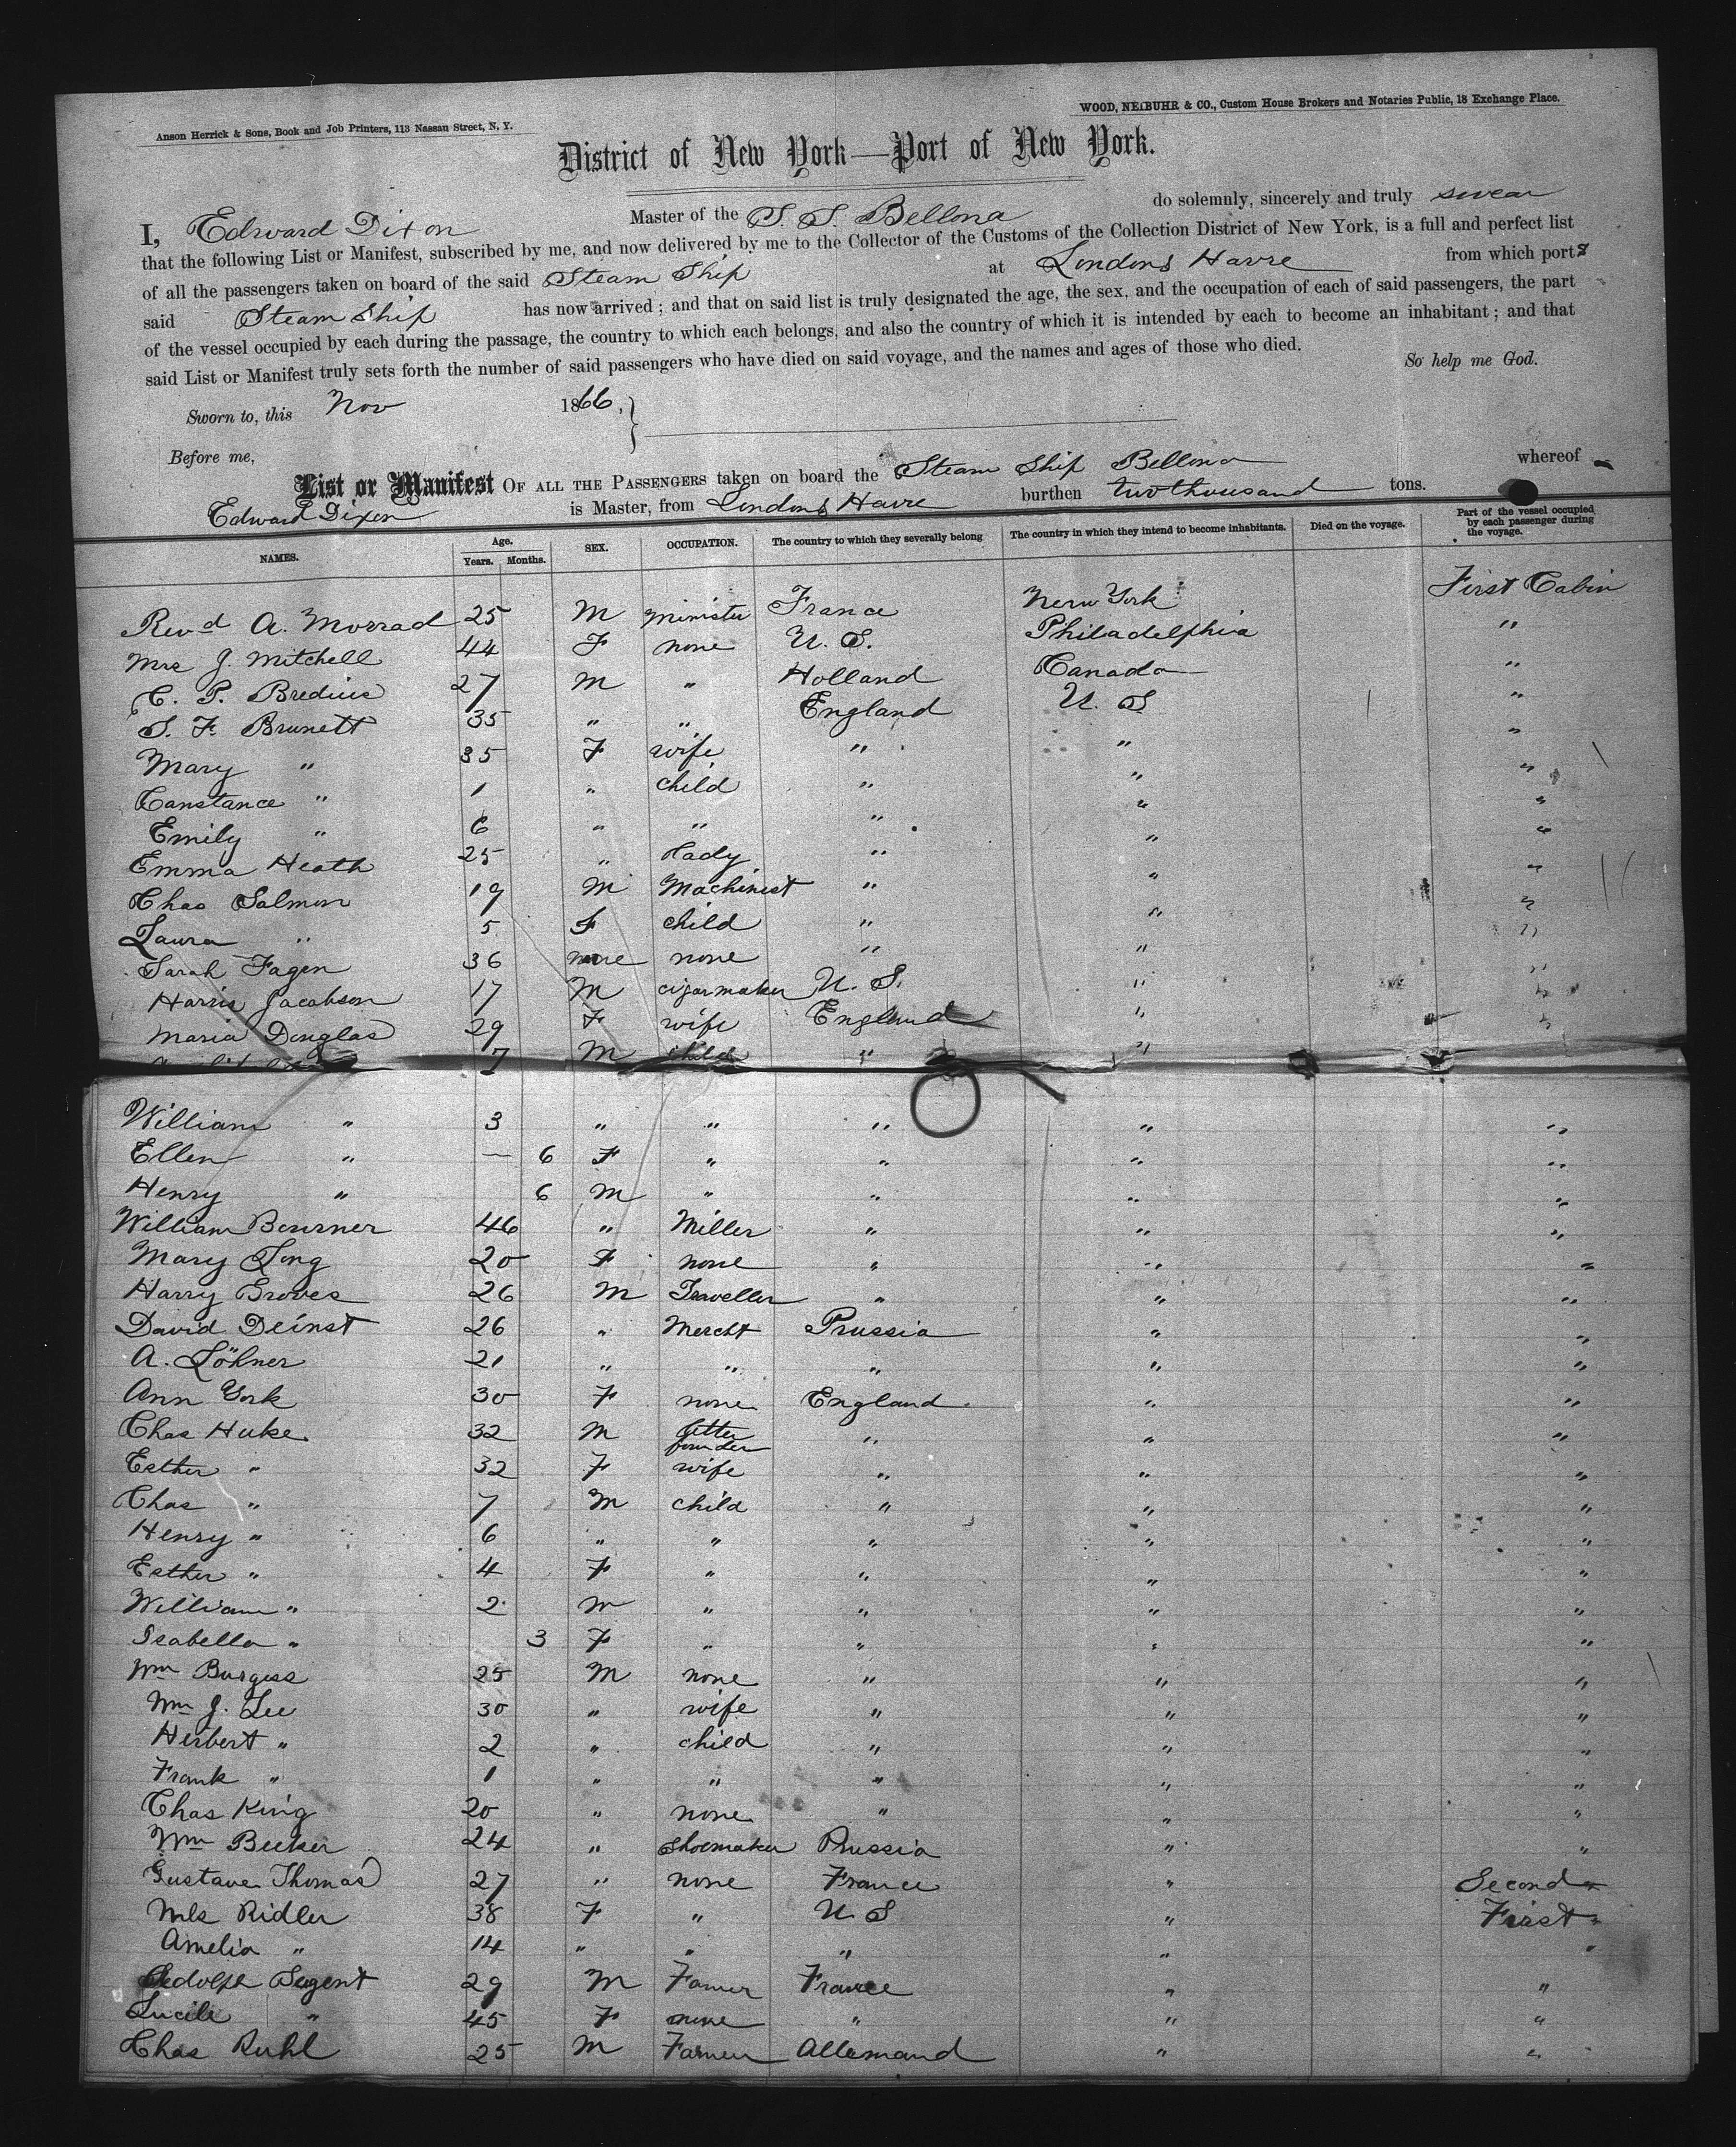 Anson Herrick & Sons, Book and Job Printers, 113 Nassau Street, N. Y.
WOOD, NEIBUHR & CO., Custom House Brokers and Notaries Public, 18 Exchange Place.
District of New York—Port of New York.
I, Edward Dixon Master of the S. S. Bellona do solemnly, sincerely and truly swear
that the following List or Manifest, subscribed by me, and now delivered by me to the Collector of the Customs of the Collection District of New York, is a full and perfect list
of all the passengers taken on board of the said Steam Ship at London & Havre from which ports
said Steam Ship has now arrived; and that on said list is truly designated the age, the sex, and the occupation of each of said passengers, the part
of the vessel occupied by each during the passage, the country to which each belongs, and also the country of which it is intended by each to become an inhabitant; and that
said List or Manifest truly sets forth the number of said passengers who have died on said voyage, and the names and ages of those who died.
So help me God.
Sworn to, this Nov 1866,
Before me,
List or Manifest OF ALL THE PASSENGERS taken on board the Steam Ship Bellona whereof
Edward Dixon is Master, from London & Havre burthen two thousand tons.
NAMES. Age. Years. Months. SEX. OCCUPATION. The country to which they severally belong The country in which they intend to become inhabitants. Died on the voyage. Part of the vessel occupied by each passenger during the voyage.
Revd A. Morrad 25 M Minister France New York First Cabin
Mrs J. Mitchell 44 F none U. S. Philadelphia "
C. P. Bredius 27 M " Holland Canada "
S. F. Brunett 35 " " England U. S "
Mary " 35 F wife " " "
Canstance " 1 " child " " "
Emily " 6 " " " " "
Emma Heath 25 " Lady " " "
Chas Salmon 19 M Machinist " " "
Laura " 5 F child " " "
Sarah Fagen 36 none " " "
Harris Jacobson 17 M cigarmaker U. S. " "
Maria Douglas 29 F wife England " "
7 M child " "
William " 3 " " " " "
Ellen " — 6 F " " " "
Henry " 6 M " " " "
William Bourner 46 " Miller " " "
Mary Long 20 F none " " "
Harry Groves 26 M Traveller " " "
David Deinst 26 " Mercht Prussia " "
A. Löhner 21 " " " " "
Ann York 30 F none England " "
Chas Huke 32 M letter founder " " "
Esther " 32 F wife " " "
Chas " 7 M child " " "
Henry " 6 " " " " "
Esther " 4 F " " " "
William " 2 M " " " "
Isabella " 3 F " " " "
Wm Burgess 25 M none " " "
Wm J. Lee 30 " wife " " "
Herbert " 2 " child " " "
Frank " 1 " " " " "
Chas King 20 " none " " "
Wm Becker 24 " Shoemaker Prussia " "
Gustave Thomas 27 " none France " Second "
Mls Ridler 38 F " U. S " First "
Amelia " 14 " " " " "
29 M Farmer France " "
Lucile " 45 F none " " "
Chas Ruhl 25 M Farmer Allemand " "